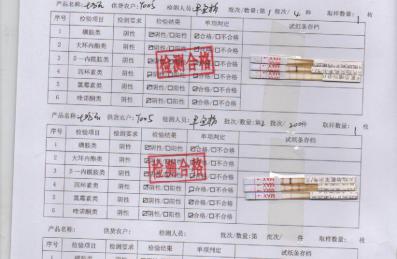 产品名称: 供货农户: Y005 检测人员: 批次/数量: 第1批次/ 件 取样数量: 1 枚
序号 检验项目 检测要求 检验结果 单项判定 试纸条存档
1 磺胺类 阴性 ☑阴性/□阳性 ☑合格/□不合格
2 大环内酯类 阴性 ☑阴性/□阳性 ☑合格/□不合格
3 β-内酰胺类 阴性
4 四环素类 阴性
5 氯霉素类 阴性 ☑阴性/□阳性 ☑合格/□不合格
6 喹诺酮类 阴性 ☑阴性/□阳性 ☑合格/□不合格
检测合格
产品名称: 供货农户: Y005 检测人员: 批次/数量: 第2批次/ 200件 取样数量: 1 枚
序号 检验项目 检测要求 检验结果 单项判定 试纸条存档
1 磺胺类 阴性 ☑阴性/□阳性 ☑合格/□不合格
2 大环内酯类 阴性
3 β-内酰胺类 阴性
4 四环素类 阴性 合格/□不合格
5 氯霉素类 阴性 ☑阴性/□阳性 ☑合格/□不合格
6 喹诺酮类 阴性 ☑阴性/□阳性 ☑合格/□不合格
检测合格
产品名称: 供货农户: 检测人员: 批次/数量: 第 批次/ 件 取样数量: 枚
序号 检验项目 检测要求 检验结果 单项判定 试纸条存档
1 磺胺类 阴性 □阴性/□阳性 □合格/□不合格